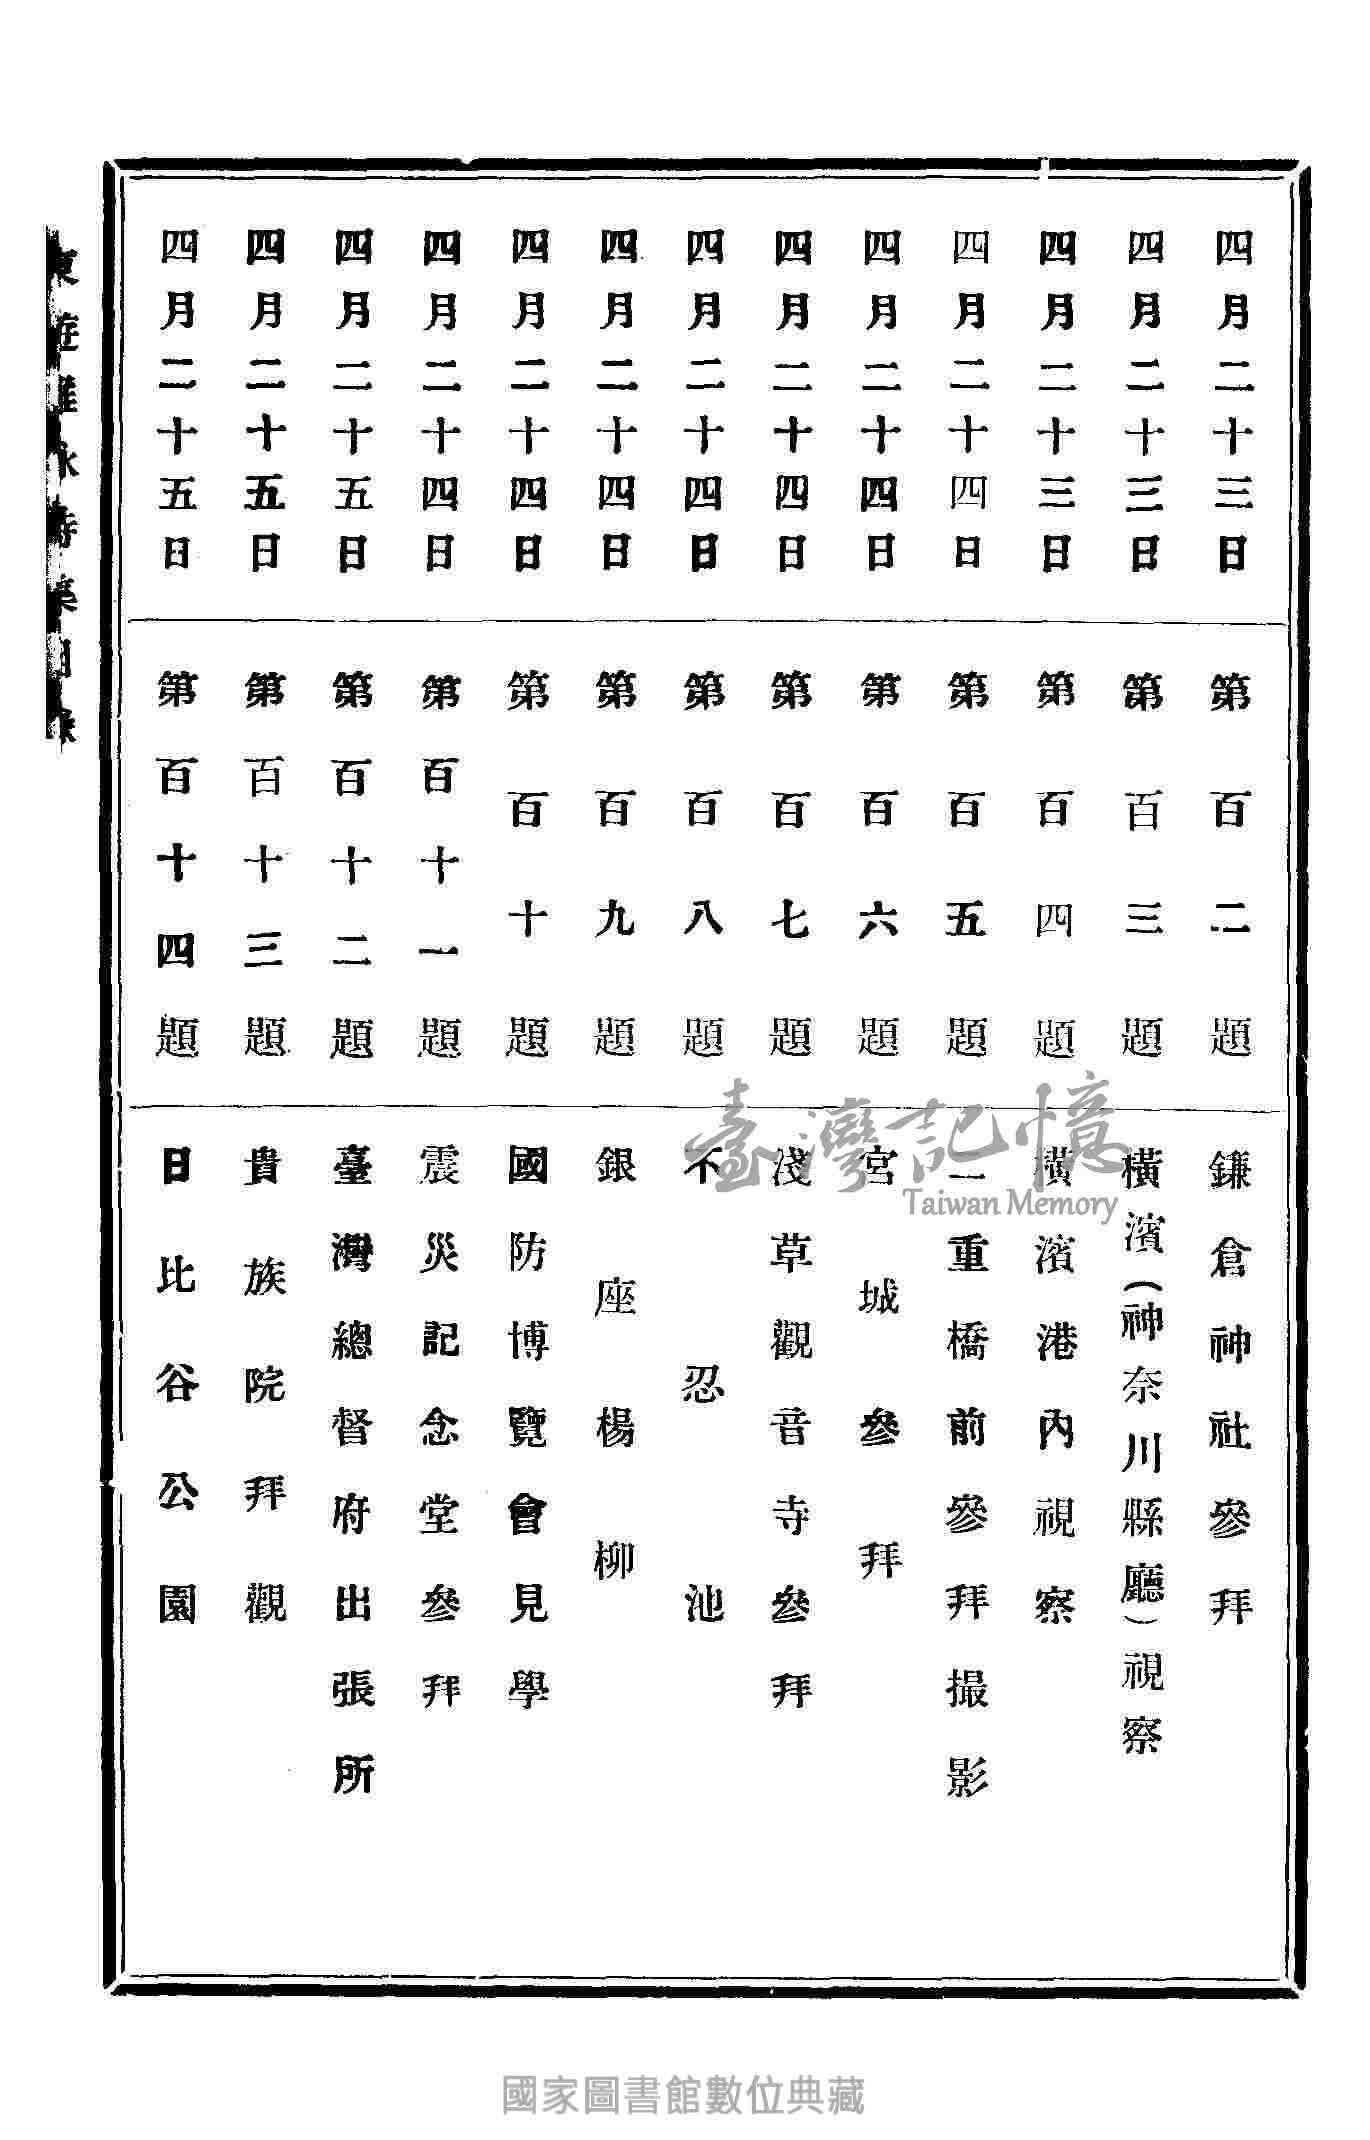 四月二十三日 第百二題 鎌倉神社參拜
四月二十三日 第百三題 橫濱(神奈川縣廳)視察
四月二十三日 第百四題 橫濱港內視察
四月二十四日 第百五題 二重橋前參拜撮影
四月二十四日 第百六題 宮城參拜
四月二十四日 第百七題 淺草觀音寺參拜
四月二十四日 第百八題 不忍池
四月二十四日 第百九題 銀座楊柳
四月二十四日 第百十題 國防博覽會見學
四月二十四日 第百十一題 震災記念堂參拜
四月二十五日 第百十二題 臺灣總督府出張所
四月二十五日 第百十三題 貴族院拜觀
四月二十五日 第百十四題 日比谷公園
東遊雅詠詩集目錄
臺灣記憶
Taiwan Memory
國家圖書館數位典藏